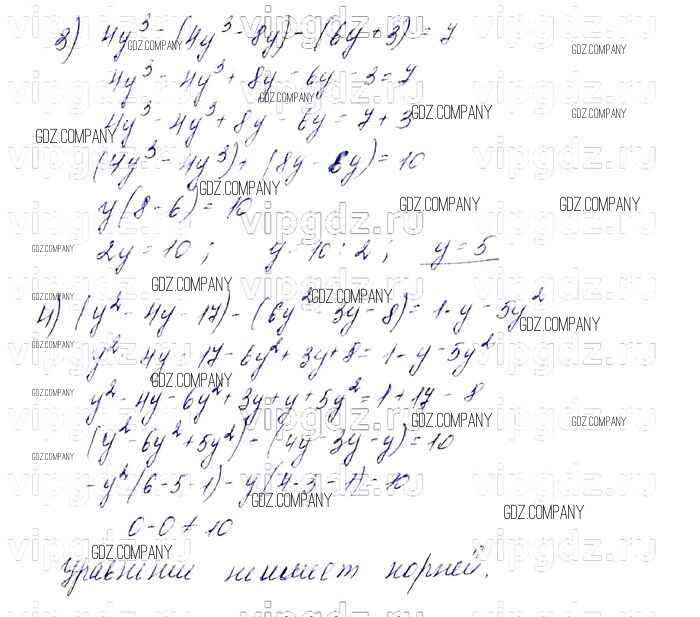 3) 4y³ - (4y³ - 8y) - (6y + 3) = 7
4y³ - 4y³ + 8y - 6y - 3 = 7
4y³ - 4y³ + 8y - 6y = 7 + 3
(4y³ - 4y³) + (8y - 6y) = 10
y(8 - 6) = 10
2y = 10 ; y = 10 : 2 ; y = 5
4) (y² - 4y - 17) - (6y² - 3y - 8) = 1 - y - 5y²
y² - 4y - 17 - 6y² + 3y + 8 = 1 - y - 5y²
y² - 4y - 6y² + 3y + y + 5y² = 1 + 17 - 8
(y² - 6y² + 5y²) - (4y - 3y - y) = 10
-y²(6 - 5 - 1) - y(4 - 3 - 1) = 10
0 - 0 ≠ 10
Уравнение не имеет корней.